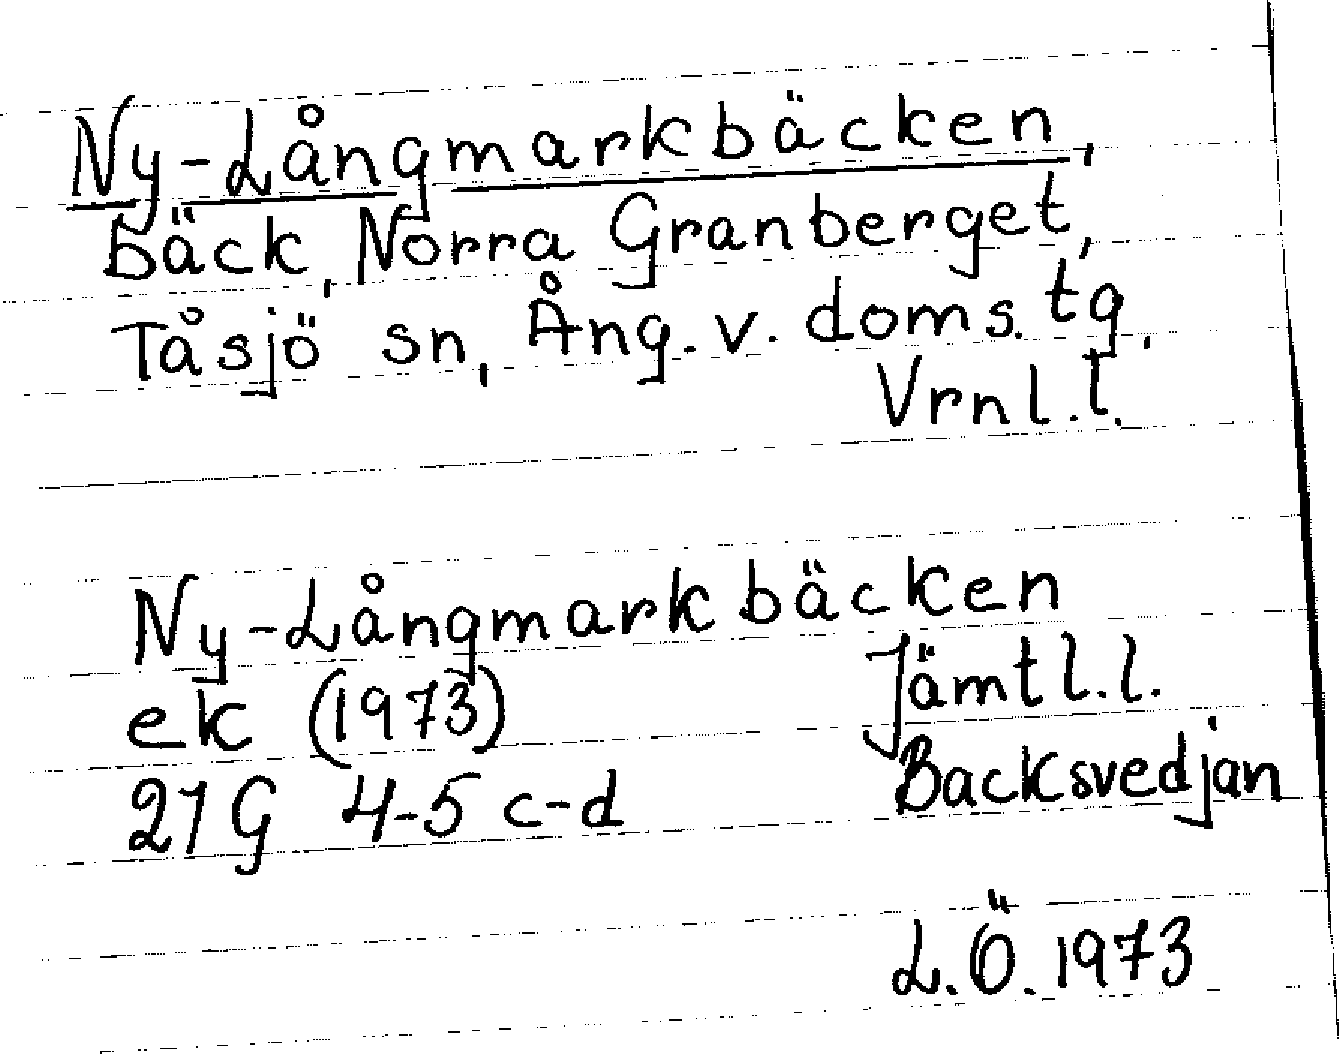 Ny-Långmarkbäcken,
bäck, Norra Granberget,
Tåsjö sn, Ång. v. doms. tg,
Vrnl. l.
Ny-Långmarkbäcken
ek (1973) Jämtl. l.
21G 4-5 c-d Backsvedjan
L.Ö. 1973